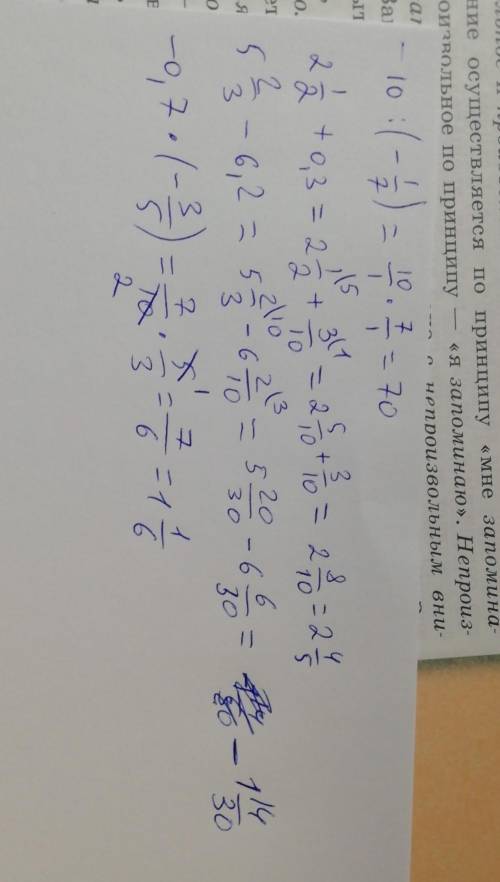 ние осуществляется по принципу «мне запомина-
оизвольное по принципу — «я запоминаю». Непроиз-
непроизвольным вни-
-10 : (-1/7) = 10/1 · 7/1 = 70
2 1/2 + 0,3 = 2 1\5/2 + 3\1/10 = 2 5/10 + 3/10 = 2 8/10 = 2 4/5
5 2/3 - 6,2 = 5 2\10/3 - 6 2\3/10 = 5 20/30 - 6 6/30 = - 14/30
-0,7 · (-3/5) = 7/10 · 5/3 = 7/6 = 1 1/6